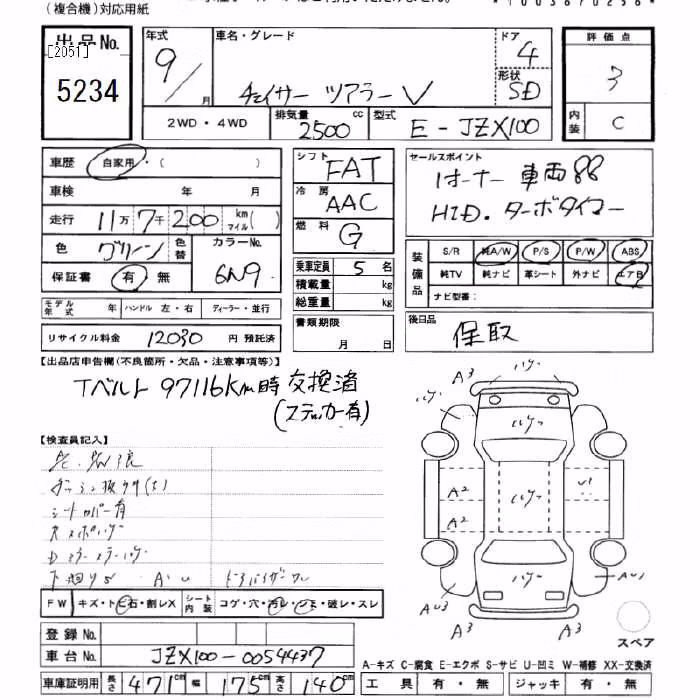 (複合機)対応用紙
出品No. [2051] 5234
年式 9/ 月
車名・グレード チェイサー ツアラーV
ドア 4
形状 SD
評価点 3
内装 C
2WD・4WD
排気量 2500 cc
型式 E-JZX100
車歴 自家用・( )
車検 年 月
走行 11万7千200 km マイル( )
色 グリーン 色替 カラーNo. 6N9
保証書 有 無
モデル年式 年 ハンドル 左・右 ディーラー・並行
リサイクル料金 12030 円 預託済
シフト FAT
冷房 AAC
燃料 G
乗車定員 5 名
積載量 kg
総重量 kg
書類期限 月 日
セールスポイント
HID.ターボタイマー
装備品 S/R 純A/W P/S P/W ABS
純TV 純ナビ 革シート 外ナビ エアB
ナビ型番:
後日品 保取
【出品店申告欄(不良箇所・欠品・注意事項等)】
Tベルト 97116km時 交換済
(ステッカー有)
【検査員記入】
シートカバー有
FW キズ・トビ石・割レX シート内装 コゲ・穴・汚レ・シミ・破レ・スレ
登録No.
車台No. JZX100-0054437
車庫証明用 長さ 471cm 幅 175cm 高さ 140cm
A3
A2
A2
U1
AU3
AU1
A3
A3
スペア
A-キズ C-腐食 E-エクボ S-サビ U-凹ミ W-補修 XX-交換済
工具 有・無 ジャッキ 有・無